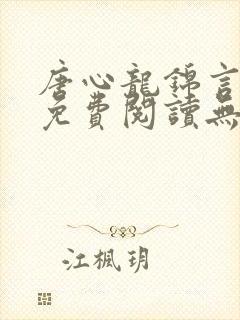 唐心龍錦言
免費閱讀無
江楓玥